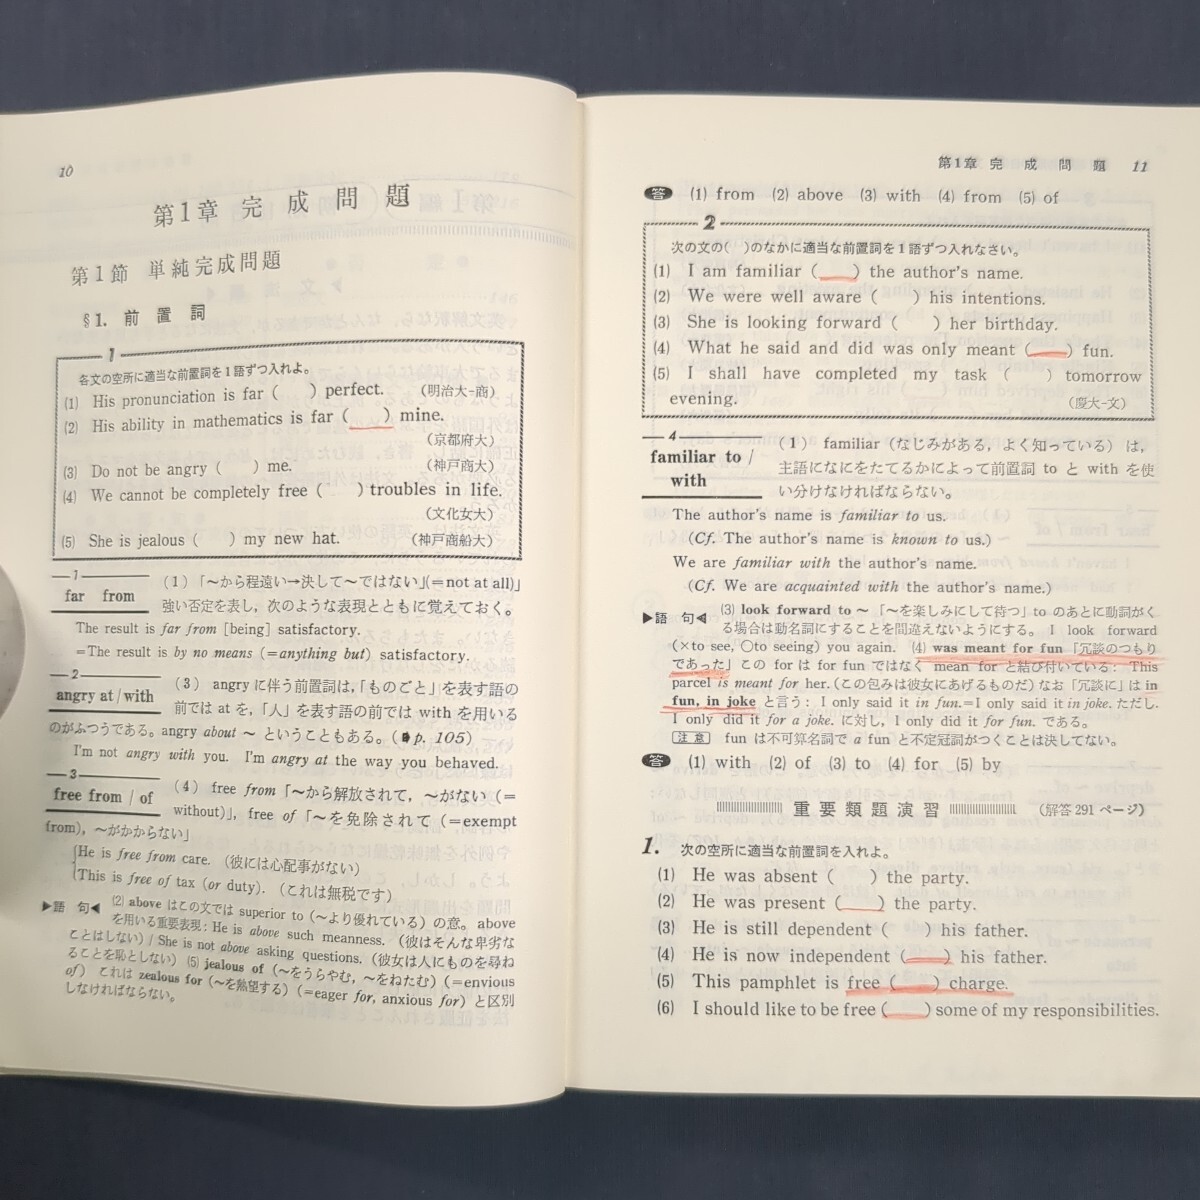 10
第1章 完成問題
第1節 単純完成問題
§1. 前置詞
1
各文の空所に適当な前置詞を1語ずつ入れよ。
(1) His pronunciation is far ( ) perfect. (明治大-商)
(2) His ability in mathematics is far ( ) mine.
(京都府大)
(3) Do not be angry ( ) me. (神戸商大)
(4) We cannot be completely free ( ) troubles in life.
(文化女大)
(5) She is jealous ( ) my new hat. (神戸商船大)
1
far from
(1)「〜から程遠い→決して〜ではない」(=not at all)」
強い否定を表し,次のような表現とともに覚えておく。
The result is far from [being] satisfactory.
=The result is by no means (=anything but) satisfactory.
2
angry at / with
(3) angry に伴う前置詞は,「ものごと」を表す語の
前では at を,「人」を表す語の前では with を用いる
のがふつうである。angry about 〜 ということもある。(p. 105)
I'm not angry with you. I'm angry at the way you behaved.
3
free from / of
(4) free from「〜から解放されて,〜がない (=
without)」, free of「〜を免除されて (=exempt
from), 〜がかからない」
He is free from care. (彼には心配事がない)
This is free of tax (or duty). (これは無税です)
▶語句◀ (2) above はこの文では superior to (〜より優れている) の意。above
を用いる重要表現: He is above such meanness. (彼はそんな卑劣な
ことはしない) / She is not above asking questions. (彼女は人にものを尋ね
ることを恥としない) (5) jealous of (〜をうらやむ,〜をねたむ) (=envious
of) これは zealous for (〜を熱望する) (=eager for, anxious for) と区別
しなければならない。
第1章 完成問題 11
答 (1) from (2) above (3) with (4) from (5) of
2
次の文の( )のなかに適当な前置詞を1語ずつ入れなさい。
(1) I am familiar ( ) the author's name.
(2) We were well aware ( ) his intentions.
(3) She is looking forward ( ) her birthday.
(4) What he said and did was only meant ( ) fun.
(5) I shall have completed my task ( ) tomorrow
evening. (慶大-文)
4
familiar to /
with
(1) familiar (なじみがある,よく知っている) は,
主語になにをたてるかによって前置詞 to と with を使
い分けなければならない。
The author's name is familiar to us.
(Cf. The author's name is known to us.)
We are familiar with the author's name.
(Cf. We are acquainted with the author's name.)
▶語句◀ (3) look forward to 〜「〜を楽しみにして待つ」to のあとに動詞がく
る場合は動名詞にすることを間違えないようにする。I look forward
(×to see, ○to seeing) you again. (4) was meant for fun「冗談のつもり
であった」この for は for fun ではなく mean for と結び付いている: This
parcel is meant for her. (この包みは彼女にあげるものだ) なお「冗談に」は in
fun, in joke と言う: I only said it in fun.=I only said it in joke. ただし.
I only did it for a joke. に対し, I only did it for fun. である。
注意 fun は不可算名詞で a fun と不定冠詞がつくことは決してない。
答 (1) with (2) of (3) to (4) for (5) by
重要類題演習 (解答 291 ページ)
1. 次の空所に適当な前置詞を入れよ。
(1) He was absent ( ) the party.
(2) He was present ( ) the party.
(3) He is still dependent ( ) his father.
(4) He is now independent ( ) his father.
(5) This pamphlet is free ( ) charge.
(6) I should like to be free ( ) some of my responsibilities.